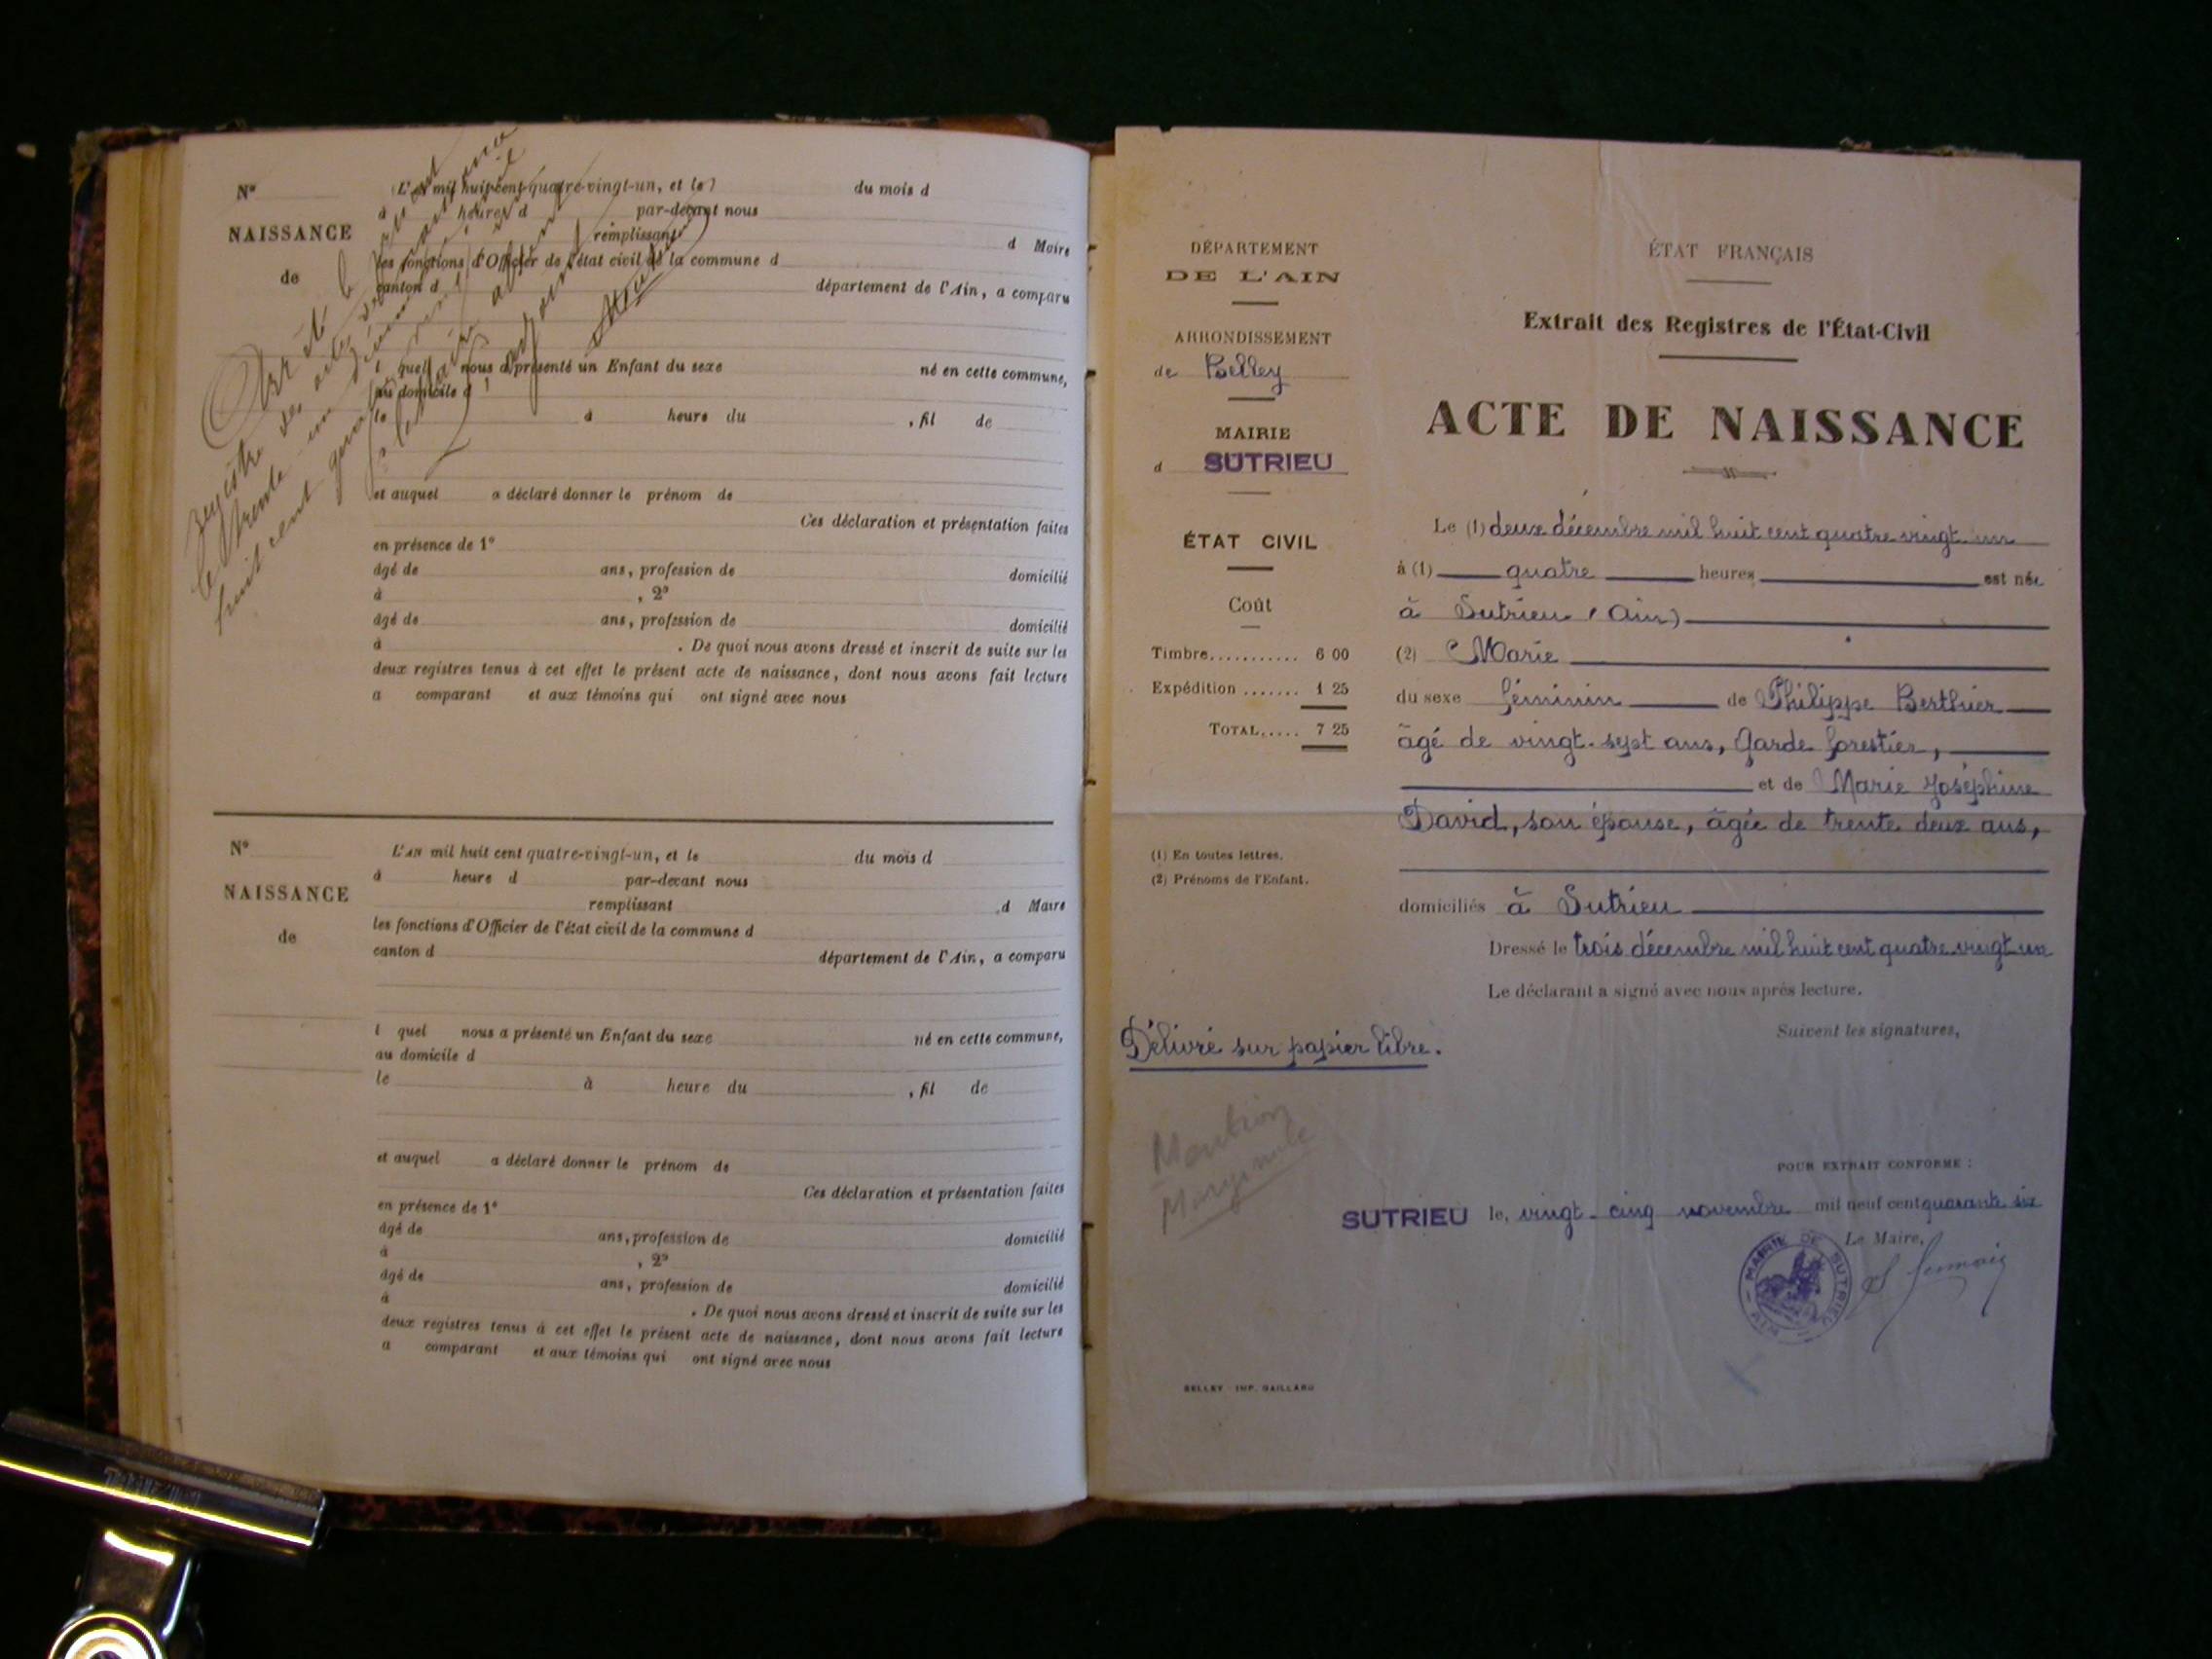 N°
NAISSANCE
de
L'AN mil huit cent quatre-vingt-un, et le du mois d
à heures d par-devant nous
remplissant d Maire
les fonctions d'Officier de l'état civil de la commune d
canton d département de l'Ain, a comparu
l quel nous a présenté un Enfant du sexe né en cette commune,
au domicile d
le à heure du , fil de
et auquel a déclaré donner le prénom de
Ces déclaration et présentation faites
en présence de 1°
âgé de ans, profession de domicilié
à , 2°
âgé de ans, profession de domicilié
à . De quoi nous avons dressé et inscrit de suite sur les
deux registres tenus à cet effet le présent acte de naissance, dont nous avons fait lecture
a comparant et aux témoins qui ont signé avec nous
Arrêté le
registre des actes de naissance
le trente un
huit cent
N°
NAISSANCE
de
L'AN mil huit cent quatre-vingt-un, et le du mois d
à heure d par-devant nous
remplissant d Maire
les fonctions d'Officier de l'état civil de la commune d
canton d département de l'Ain, a comparu
l quel nous a présenté un Enfant du sexe né en cette commune,
au domicile d
le à heure du , fil de
et auquel a déclaré donner le prénom de
Ces déclaration et présentation faites
en présence de 1°
âgé de ans, profession de domicilié
à , 2°
âgé de ans, profession de domicilié
à . De quoi nous avons dressé et inscrit de suite sur les
deux registres tenus à cet effet le présent acte de naissance, dont nous avons fait lecture
a comparant et aux témoins qui ont signé avec nous
DÉPARTEMENT
DE L'AIN
ARRONDISSEMENT
de Belley
MAIRIE
d SUTRIEU
ÉTAT CIVIL
Coût
Timbre........... 6 00
Expédition ....... 1 25
TOTAL..... 7 25
(1) En toutes lettres.
(2) Prénoms de l'Enfant.
Délivré sur papier libre.
Mention
Marginale
BELLEY IMP. GAILLARD
ÉTAT FRANÇAIS
Extrait des Registres de l'État-Civil
ACTE DE NAISSANCE
Le (1) deux décembre mil huit cent quatre vingt un
à (1) quatre heures est née
à Sutrieu (Ain)
(2) Marie
du sexe féminin de Philippe Berthier
âgé de vingt-sept ans, Garde forestier,
et de Marie Joséphine
David, son épouse, âgée de trente deux ans,
domiciliés à Sutrieu
Dressé le trois décembre mil huit cent quatre vingt un
Le déclarant a signé avec nous après lecture.
Suivent les signatures,
POUR EXTRAIT CONFORME :
SUTRIEU le, vingt-cinq novembre mil neuf cent quarante six
Le Maire,
MAIRIE DE SUTRIEU
AIN